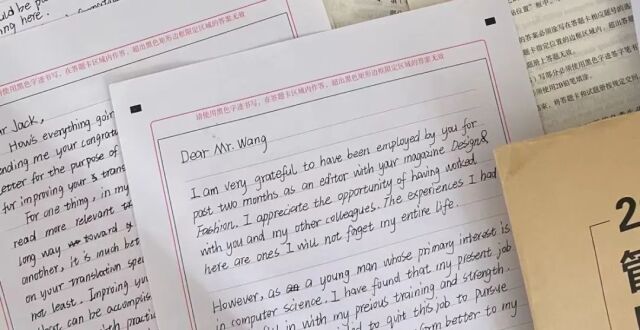 ing here.
使用黑色字迹书写，在答题卡区域内作答，超出黑色矩形边框限定区域的答案无效
Jack,
How's everything goin
nding me your congratu
etter for the purpose of
fur improving your trans
For one thing, in my
read more relevant
long way toward
another, it is much bet
on your translation spe
not least. Improing you
hat can be accomplis
with practic
请使用黑色字迹书写，在答题卡区域内作答，超出黑色矩形边框限定区域的答案无效
Dear Mr. Wang
I am very grateful to have been employed by you for
past two months as an editor with your magazine Design&
Fashion. I appreciate the opportunity of having worked
with you and my other colleagues. The experiences I had
here are ones I will not foget my entire life.
However, as a young man whose primary interest is
in computer science. I have found that my present job
in with my preious training and strength.
to quit this job to pursue
form better to my
位置"框中。
答案必须涂写在答题卡相应题号的选
题卡指定位置的边框区域内，超出答题
题册上答题无效。
写部分必须使用黑色字迹签字笔
使用2B铅笔填涂。
将答题卡和试题册按规定交
2
管